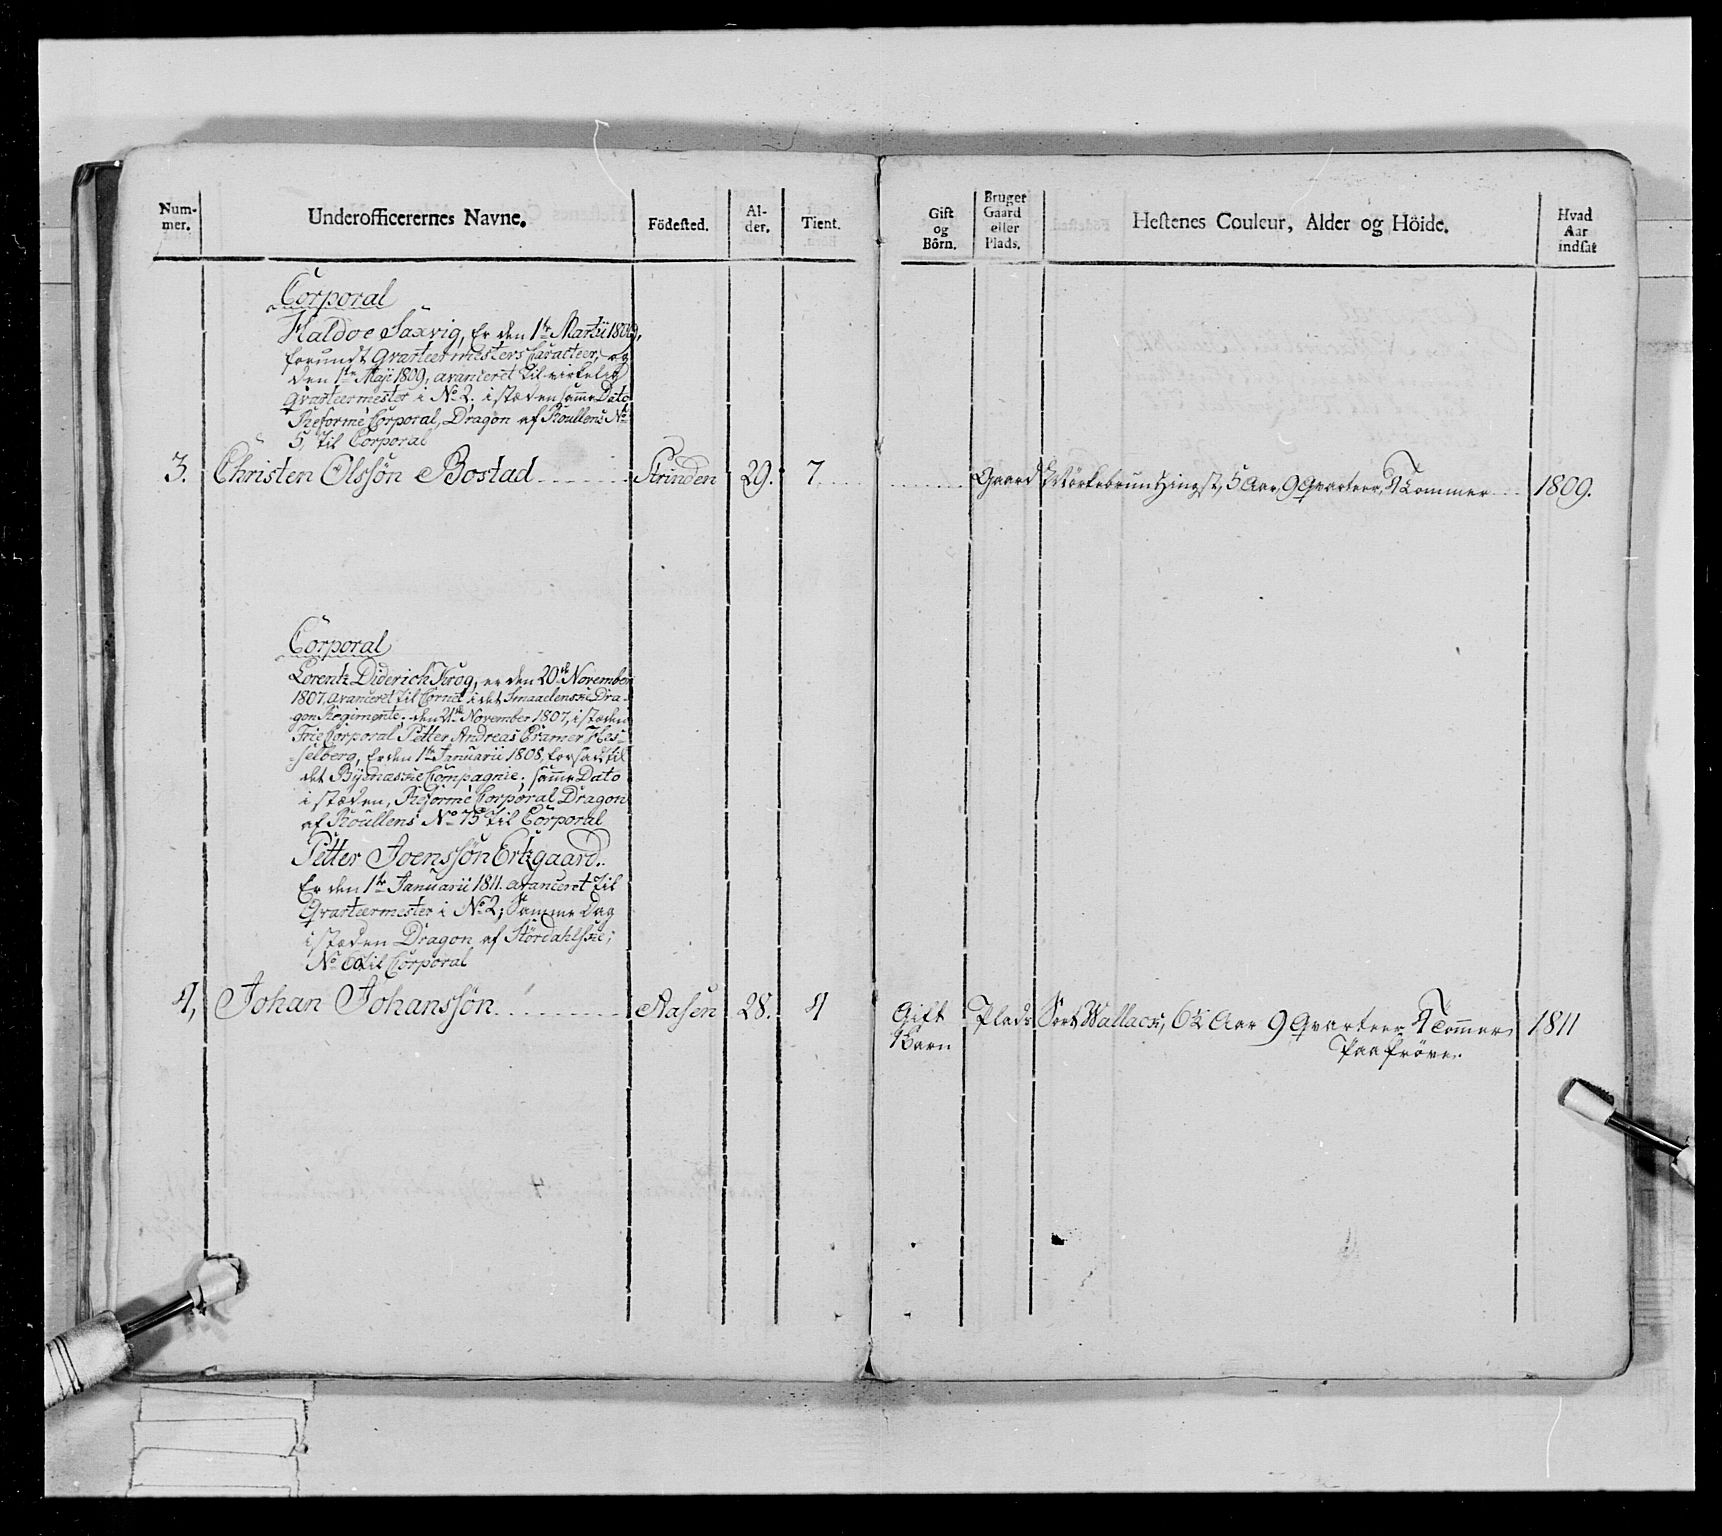 Num-
mer.
Underofficerernes Navne.
Födested.
Al-
der.
Tient.
Gift
og
Börn.
Bruger
Gaard
eller
Plads.
Hestenes Couleur, Alder og Höide.
Hvad
Aar
indsat
Corporal
Haldoe Saxvig, Er den 1te Martii 1809,
forundt Qvarteermesters Caracteer, og
den 1te Maji 1809, avanceret til virkelig
Qvarteermester i No 2. i stæden samme Dato
Reformé Corporal, Dragon af Roullens No
5, til Corporal
3. Christen Olssön Bostad Strinden 29. 7. Gaard Mörkebrun Hingst, 5 Aar, 9 Qvarteer, 1 Tommer 1809.
Corporal
Lorentz Diderich Krog, er den 20de November
1807, avanceret til Cornet i det Smaalenske Dra-
gon Regimente; den 21de November 1807, i stæden
Frie Corporal Petter Andreas Cramer Hes-
selberg, Er den 1te Januarii 1808, forsadt til
det Bynæsske Compagnie; samme Dato
i stæden, Reformé Corporal Dragon
af Roullens No 75 til Corporal
Petter Joenssön Ertzgaard.
Er den 1te Januarii 1811. avanceret til
Qvarteermester i No 2; Samme Dag
i stæden Dragon af Stördahlske;
No 60 til Corporal
4, Johan Johanssön Aasen 28. 4 Gift Plads Sort Wallack, 6 1/2 Aar 9 Qvarteer 1 Tommer 1811
1 Barn Paa Pröve.